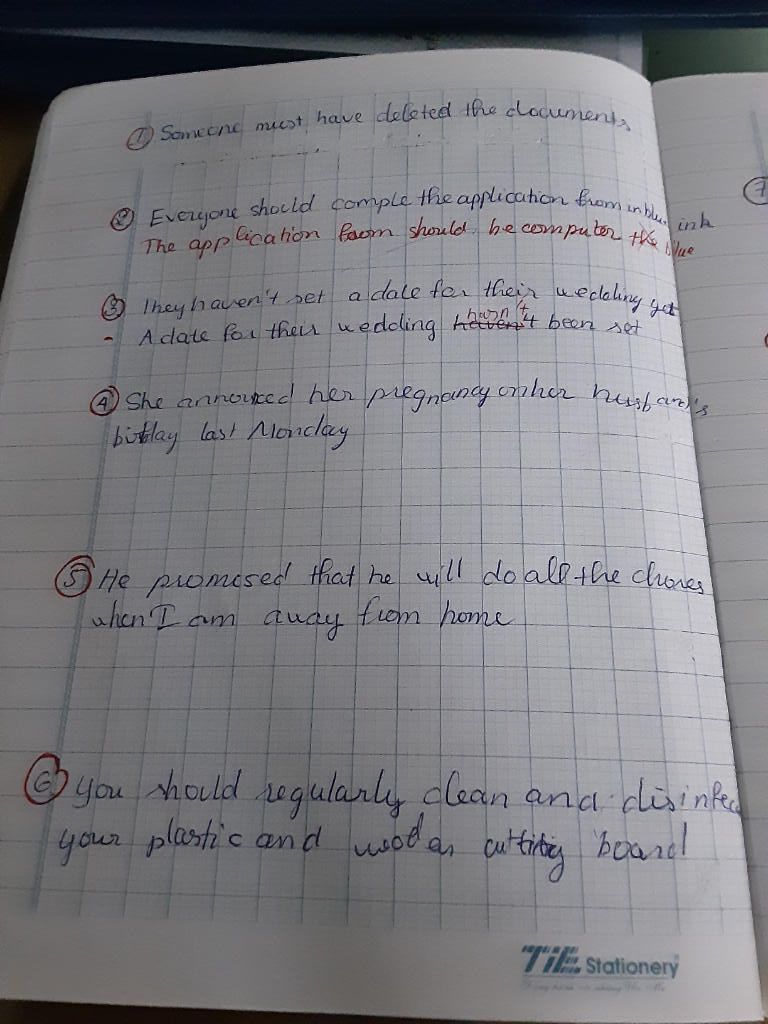 ① Someone must have deleted the documents
② Everyone should comple the application from in blue ink
The application foom should be computer the blue
③ They haven't set a date for their wedding yet
- A date for their wedding hasn't been set
④ She announced her pregnancy on her husband's
bithday last Monday
⑤ He promised that he will do all the chores
when I am away from home
⑥ you should regularly clean and disinfec
your plastic and wooden cutting board
TiE Stationery
7